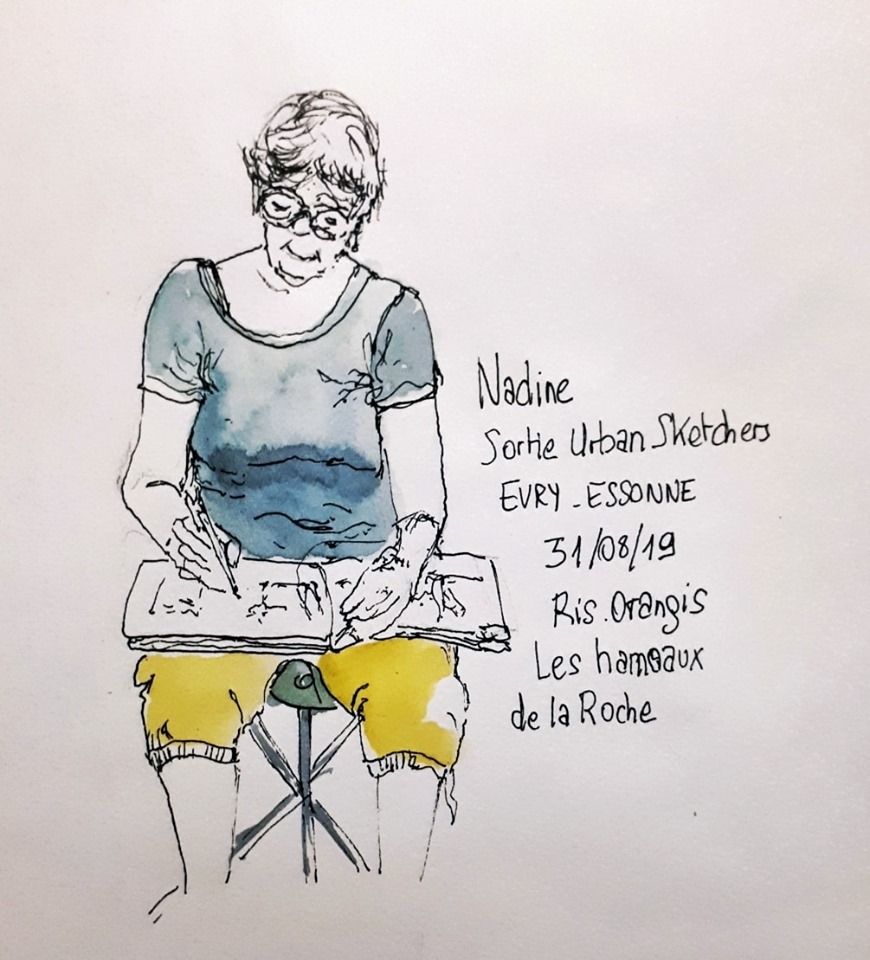 Nadine
Sortie Urban Sketchers
EVRY - ESSONNE
31/08/19
Ris. Orangis
Les hameaux
de la Roche